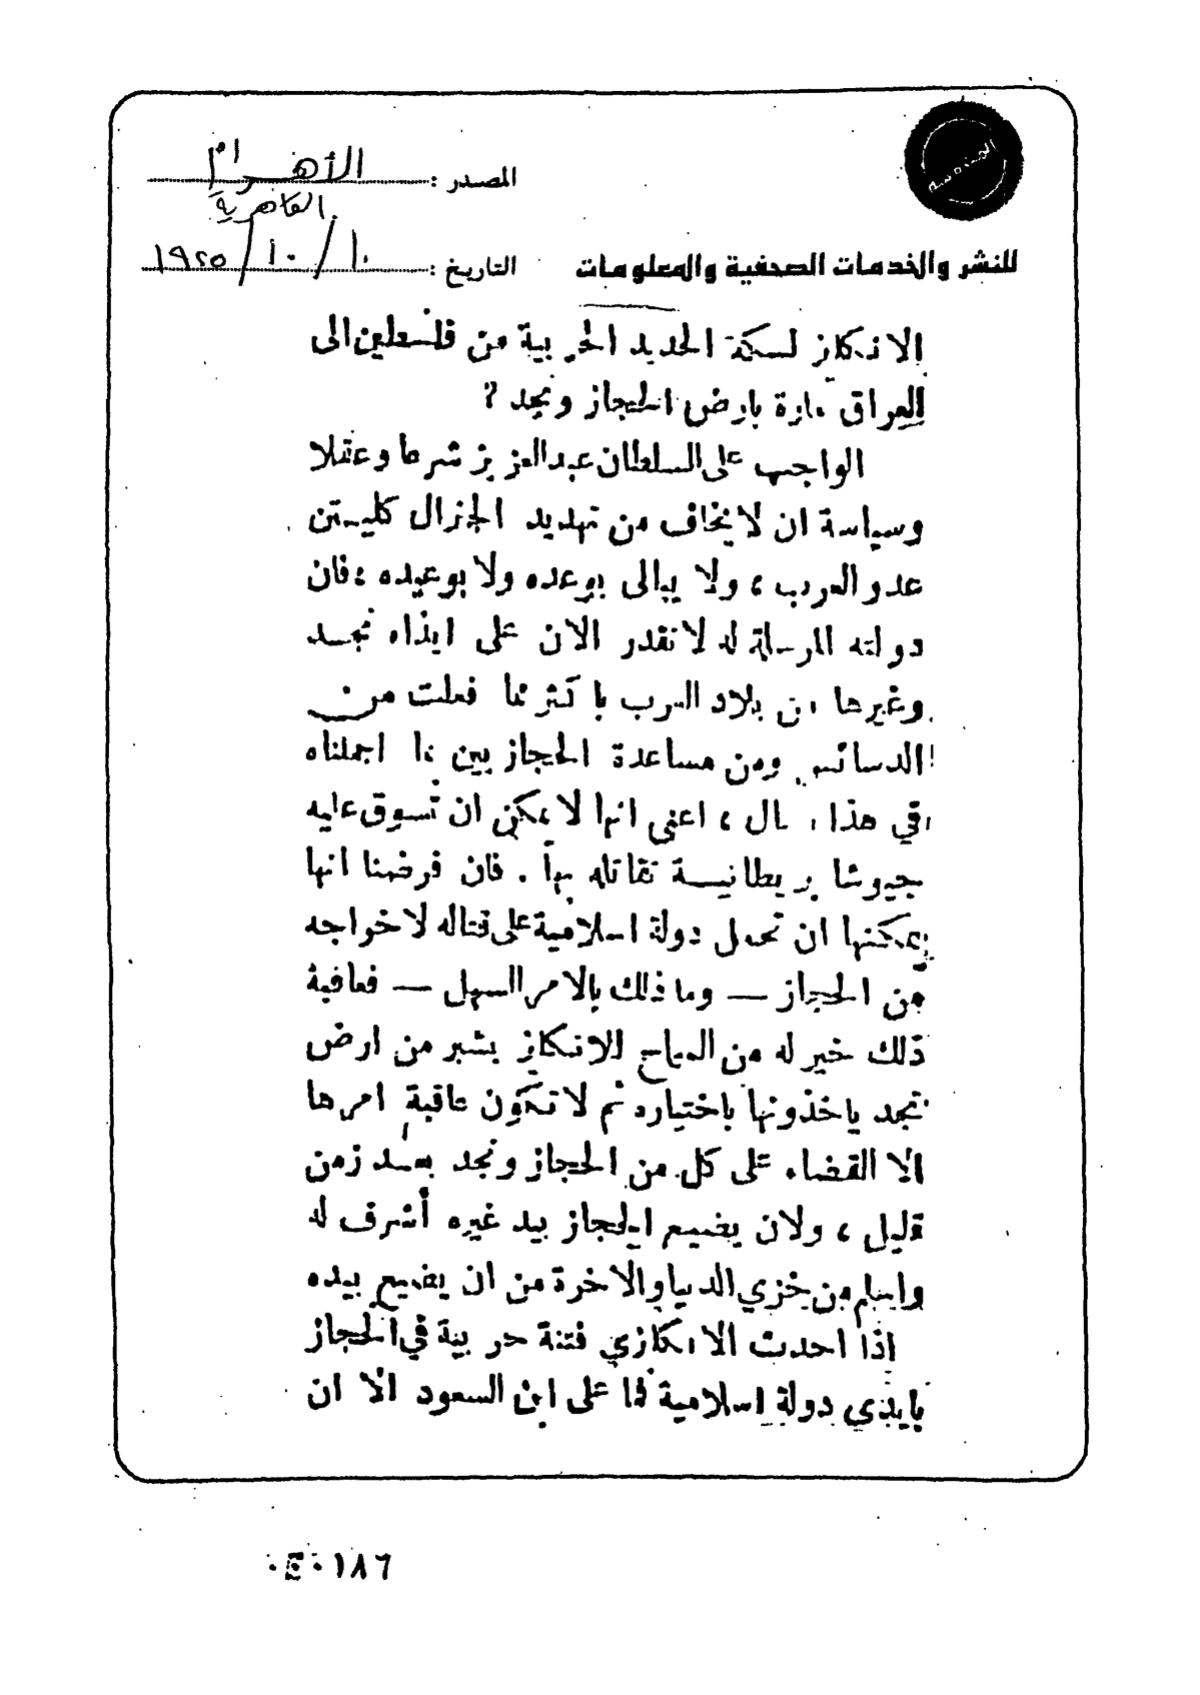 المصدر : الأهرام
القاهرية
التاريخ : ١٠ / ١٠ / ١٩٢٥
للنشر والخدمات الصحفية والمعلومات
الانكليز لسكة الحديد الحربية من فلسطين الى
العراق مارة بارض الحجاز ونجد ؟
الواجب على السلطان عبد العزيز شرعا وعقلا
وسياسة ان لا يخاف من تهديد الجنرال كليتن
عدو العرب ، ولا يبالي بوعده ولا بوعيده ، فان
دولته المرسلة له لا تقدر الان على ايذاء نجد
وغيرها من بلاد العرب باكثر مما فعلت من
الدسائس ومن مساعدة الحجاز بين ما اجملناه
في هذا المقال ، اعني انها لا يمكن ان تسوق عليه
جيوشا بريطانية تقاتله بها . فان فرضنا انها
يمكنها ان تحمل دولة اسلامية على قتاله لاخراجه
من الحجاز — وما ذلك بالامر السهل — فعاقبة
ذلك خير له من السماح للانكليز بشبر من ارض
نجد ياخذونها باختياره ثم لا تكون عاقبة امرها
الا القضاء على كل من الحجاز ونجد بعد زمن
قليل ، ولان يضيع الحجاز بيد غيره أشرف له
واسلم من خزي الدنيا والاخرة من ان يضيع بيده
اذا احدث الانكليزي فتنة حربية في الحجاز
بايدي دولة اسلامية فما على ابن السعود الا ان
٠١٨٦